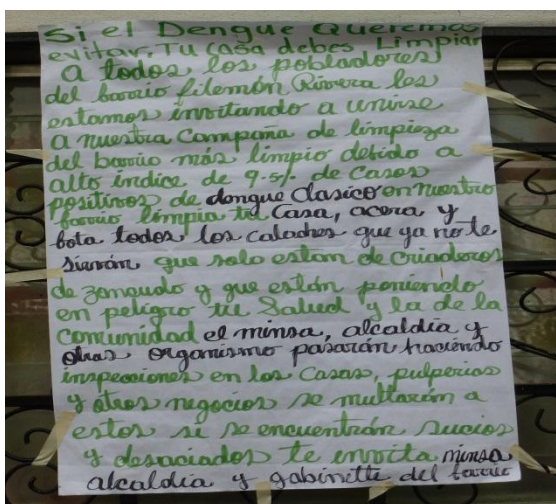 Si el Dengue Queremos
evitar, Tu casa debes Limpiar
A todos los pobladores
del barrio filemón Rivera les
estamos invitando a unirse
a nuestra Campaña de limpieza
del barrio más limpio debido a
alto índice, de 9.5% de Casos
positivos de dengue Clasico en nuestro
barrio limpia tu Casa, acera y
bota todos los calaches que ya no te
sirván que solo estan de criaderos
de zancudo y que están poniendo
en peligro tu Salud y la de la
Comunidad el minsa, alcaldia y
otras organismo pasarán haciendo
inspecciones en las Casas, pulperias
y otros negocios se multarán a
estos si se encuentrán sucios
y desaciados te invita minsa
alcaldia y gabinette del barrio